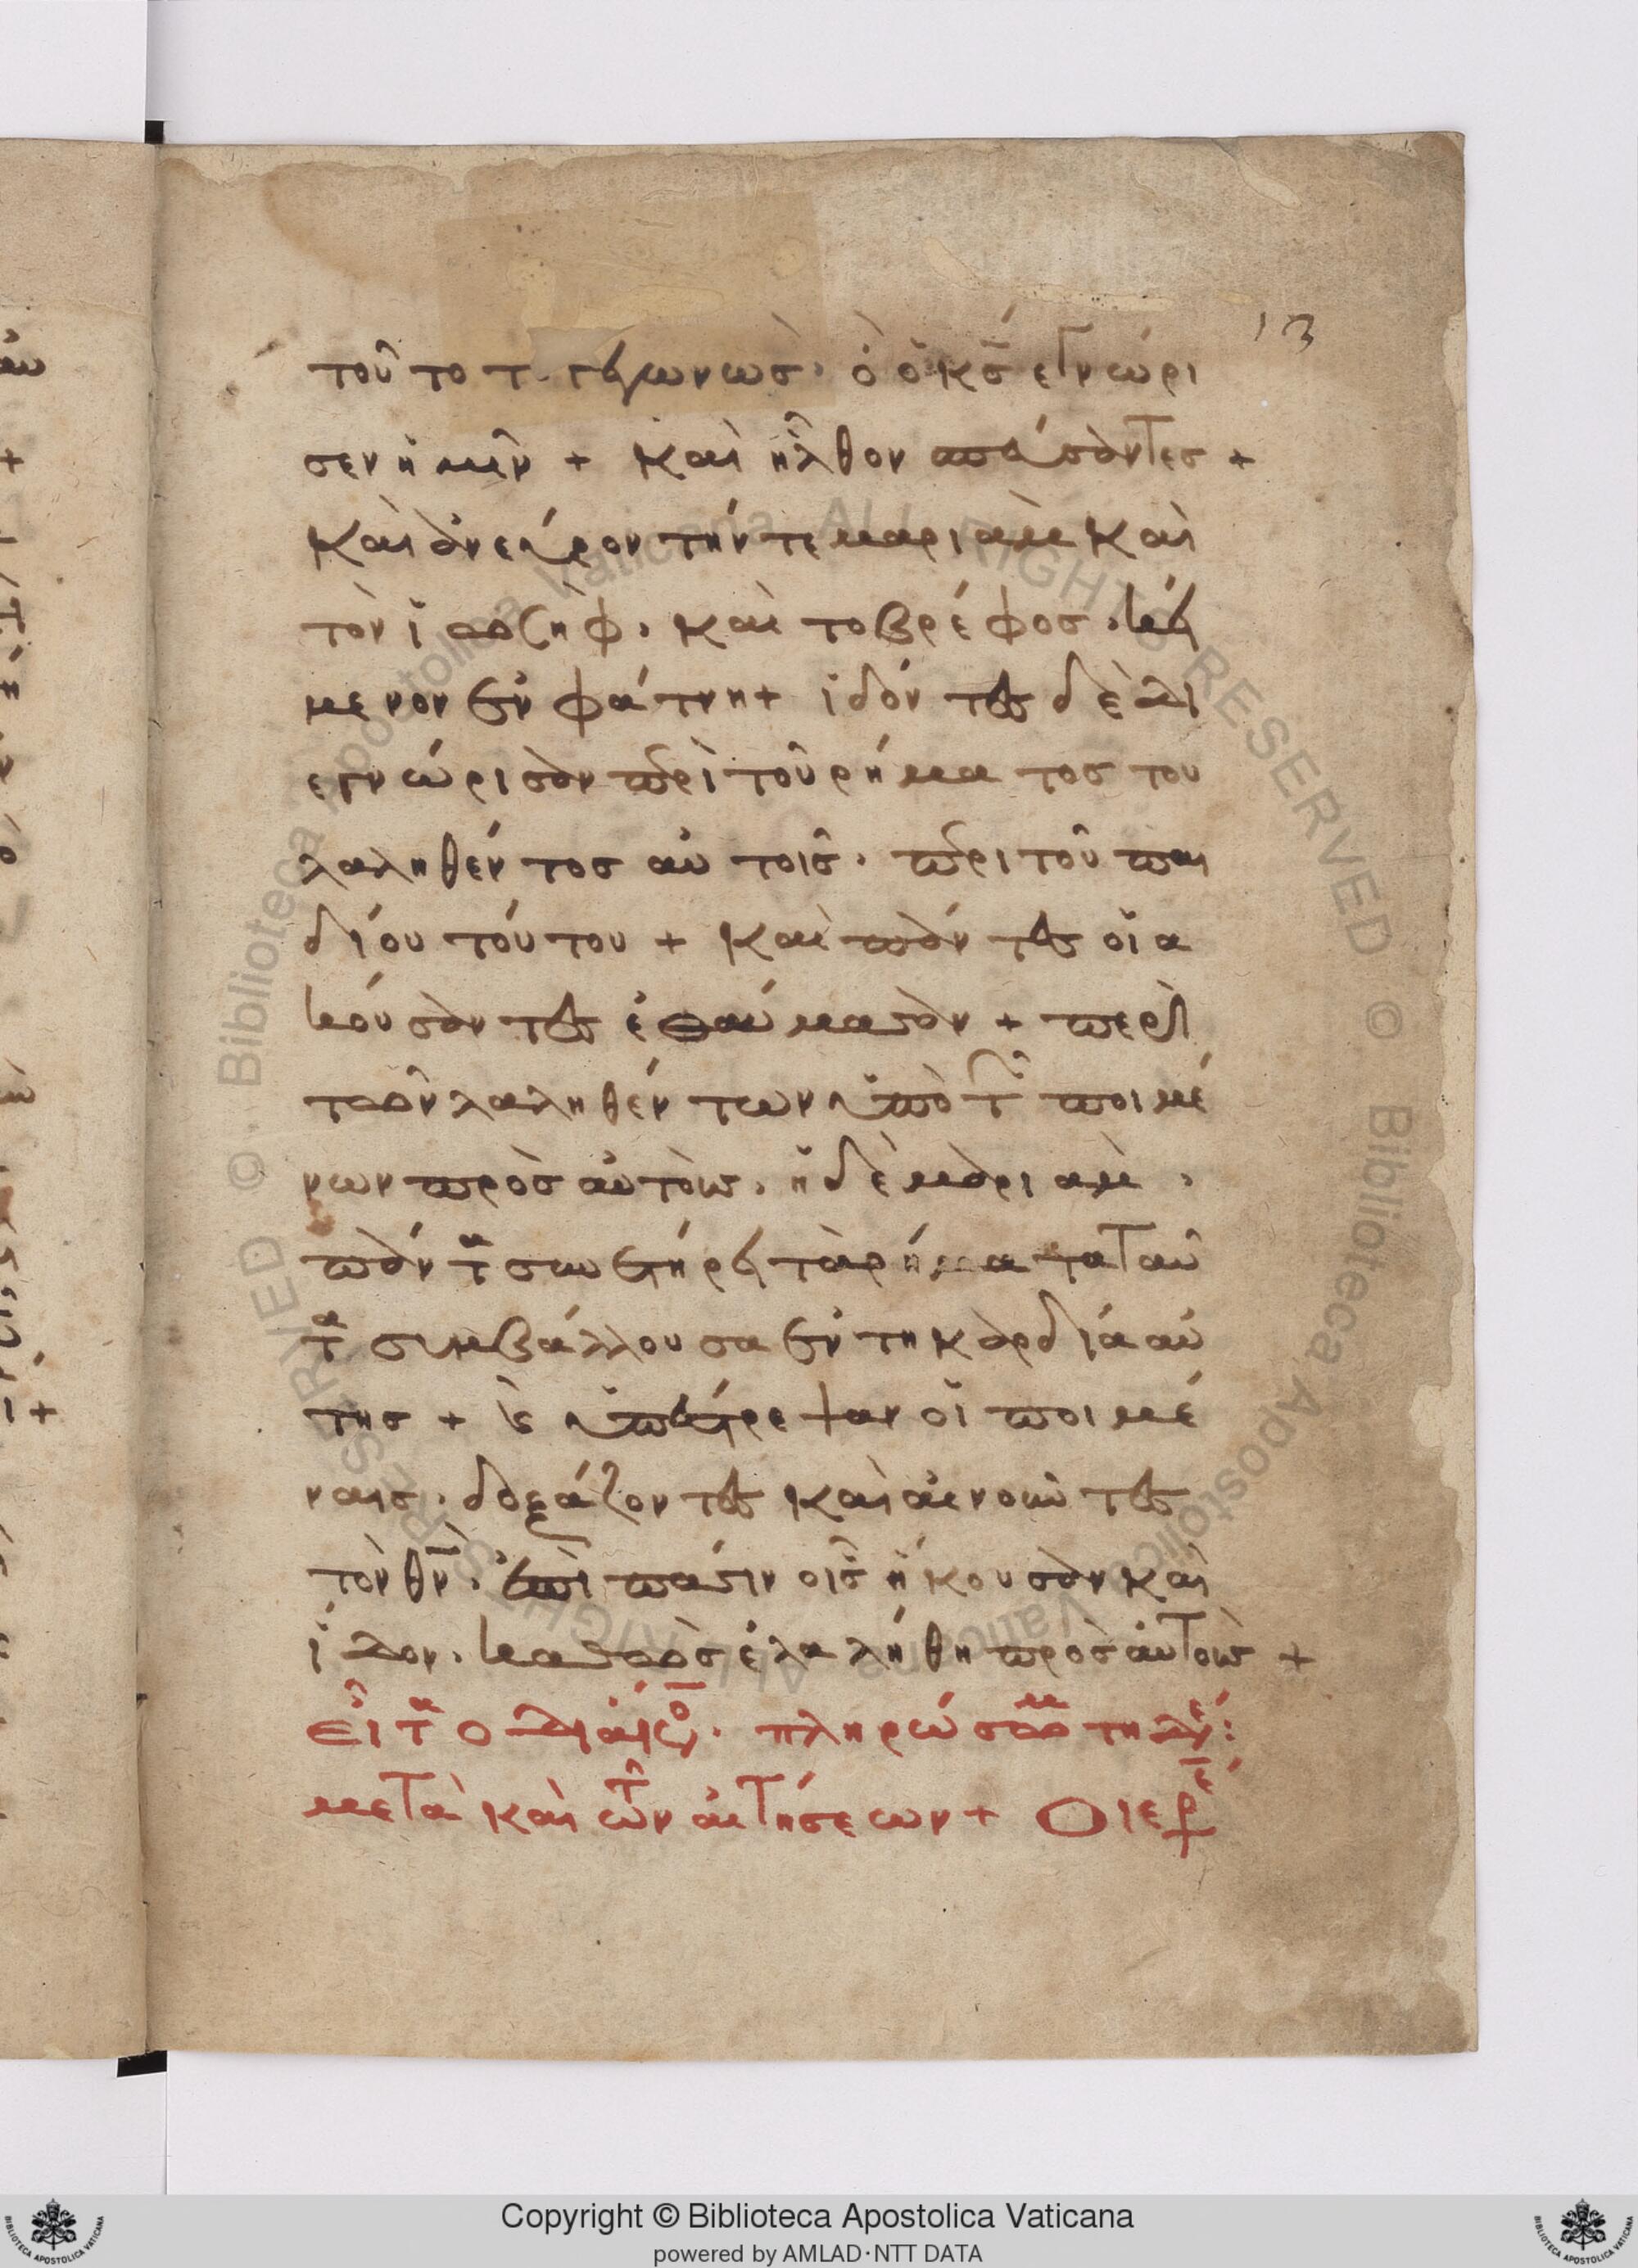 13
τοῦτο τ γεγωνωσ̀· ὁ ὁ κ̅σ̅ εγνώρι
σεν ἡμῖν + καὶ ἦλθον σπεύσαντεσ +
καὶ ἀνεύρον τήν τε μαριὰμ καὶ
τὸν ϊωσὴφ· καὶ το βρέφοσ· κεί
μενον ἐν φάτνη + ϊδόντεσ δὲ δι
εγνώρισαν περὶ τοῦ ρήματοσ του
λαληθέντοσ αὐτοῖσ· περι τοῦ παι
δίου τούτου + και πάντεσ οἵ α
κούσαντεσ ἐθαύμασαν + περὶ
τῶν λαληθέντων ὑπὸ τ ποιμέ
νων πρὸσ αὐτοὺσ· ἡ δὲ μαριαμ·
πάντα συνετήρει τὰ ρήματα ταῦ
τα συμβάλλουσα ἐν τη καρδιά αὐ
τησ + κ ὑπέστρεψαν οἱ ποιμέ
ναισ· δοξάζοντεσ καὶ αἰνοῦντεσ
τὸν θ̅ν̅· ἐπὶ πάσιν οἷσ ἤκουσαν καὶ
ἴδον· καθὼσ ἐλαλήθη πρὸσ αὐτοὺσ +
εἶτα ο διάκο· πληρώσωμ τη δέ:
μετὰ καὶ τῶν αἰτήσεων + Ο ιερ
Copyright © Biblioteca Apostolica Vaticana
powered by AMLAD·NTT DATA